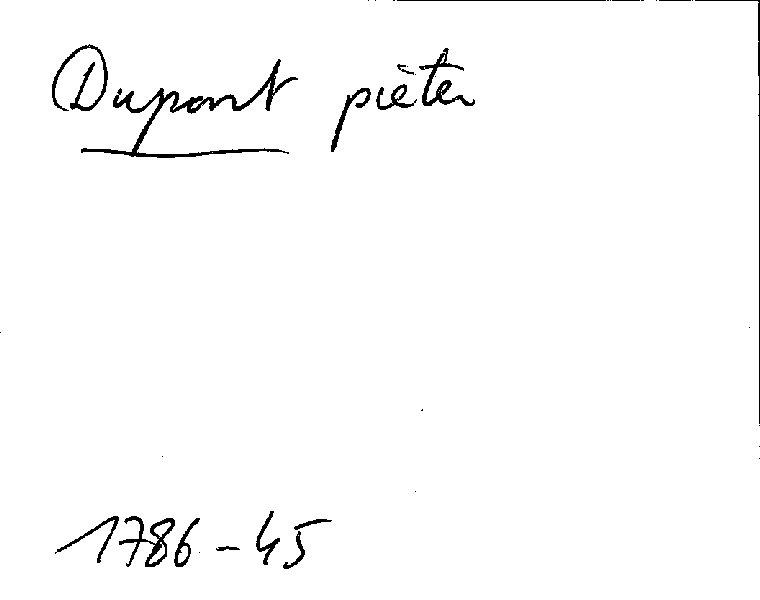 Dupont pièter
1786-45